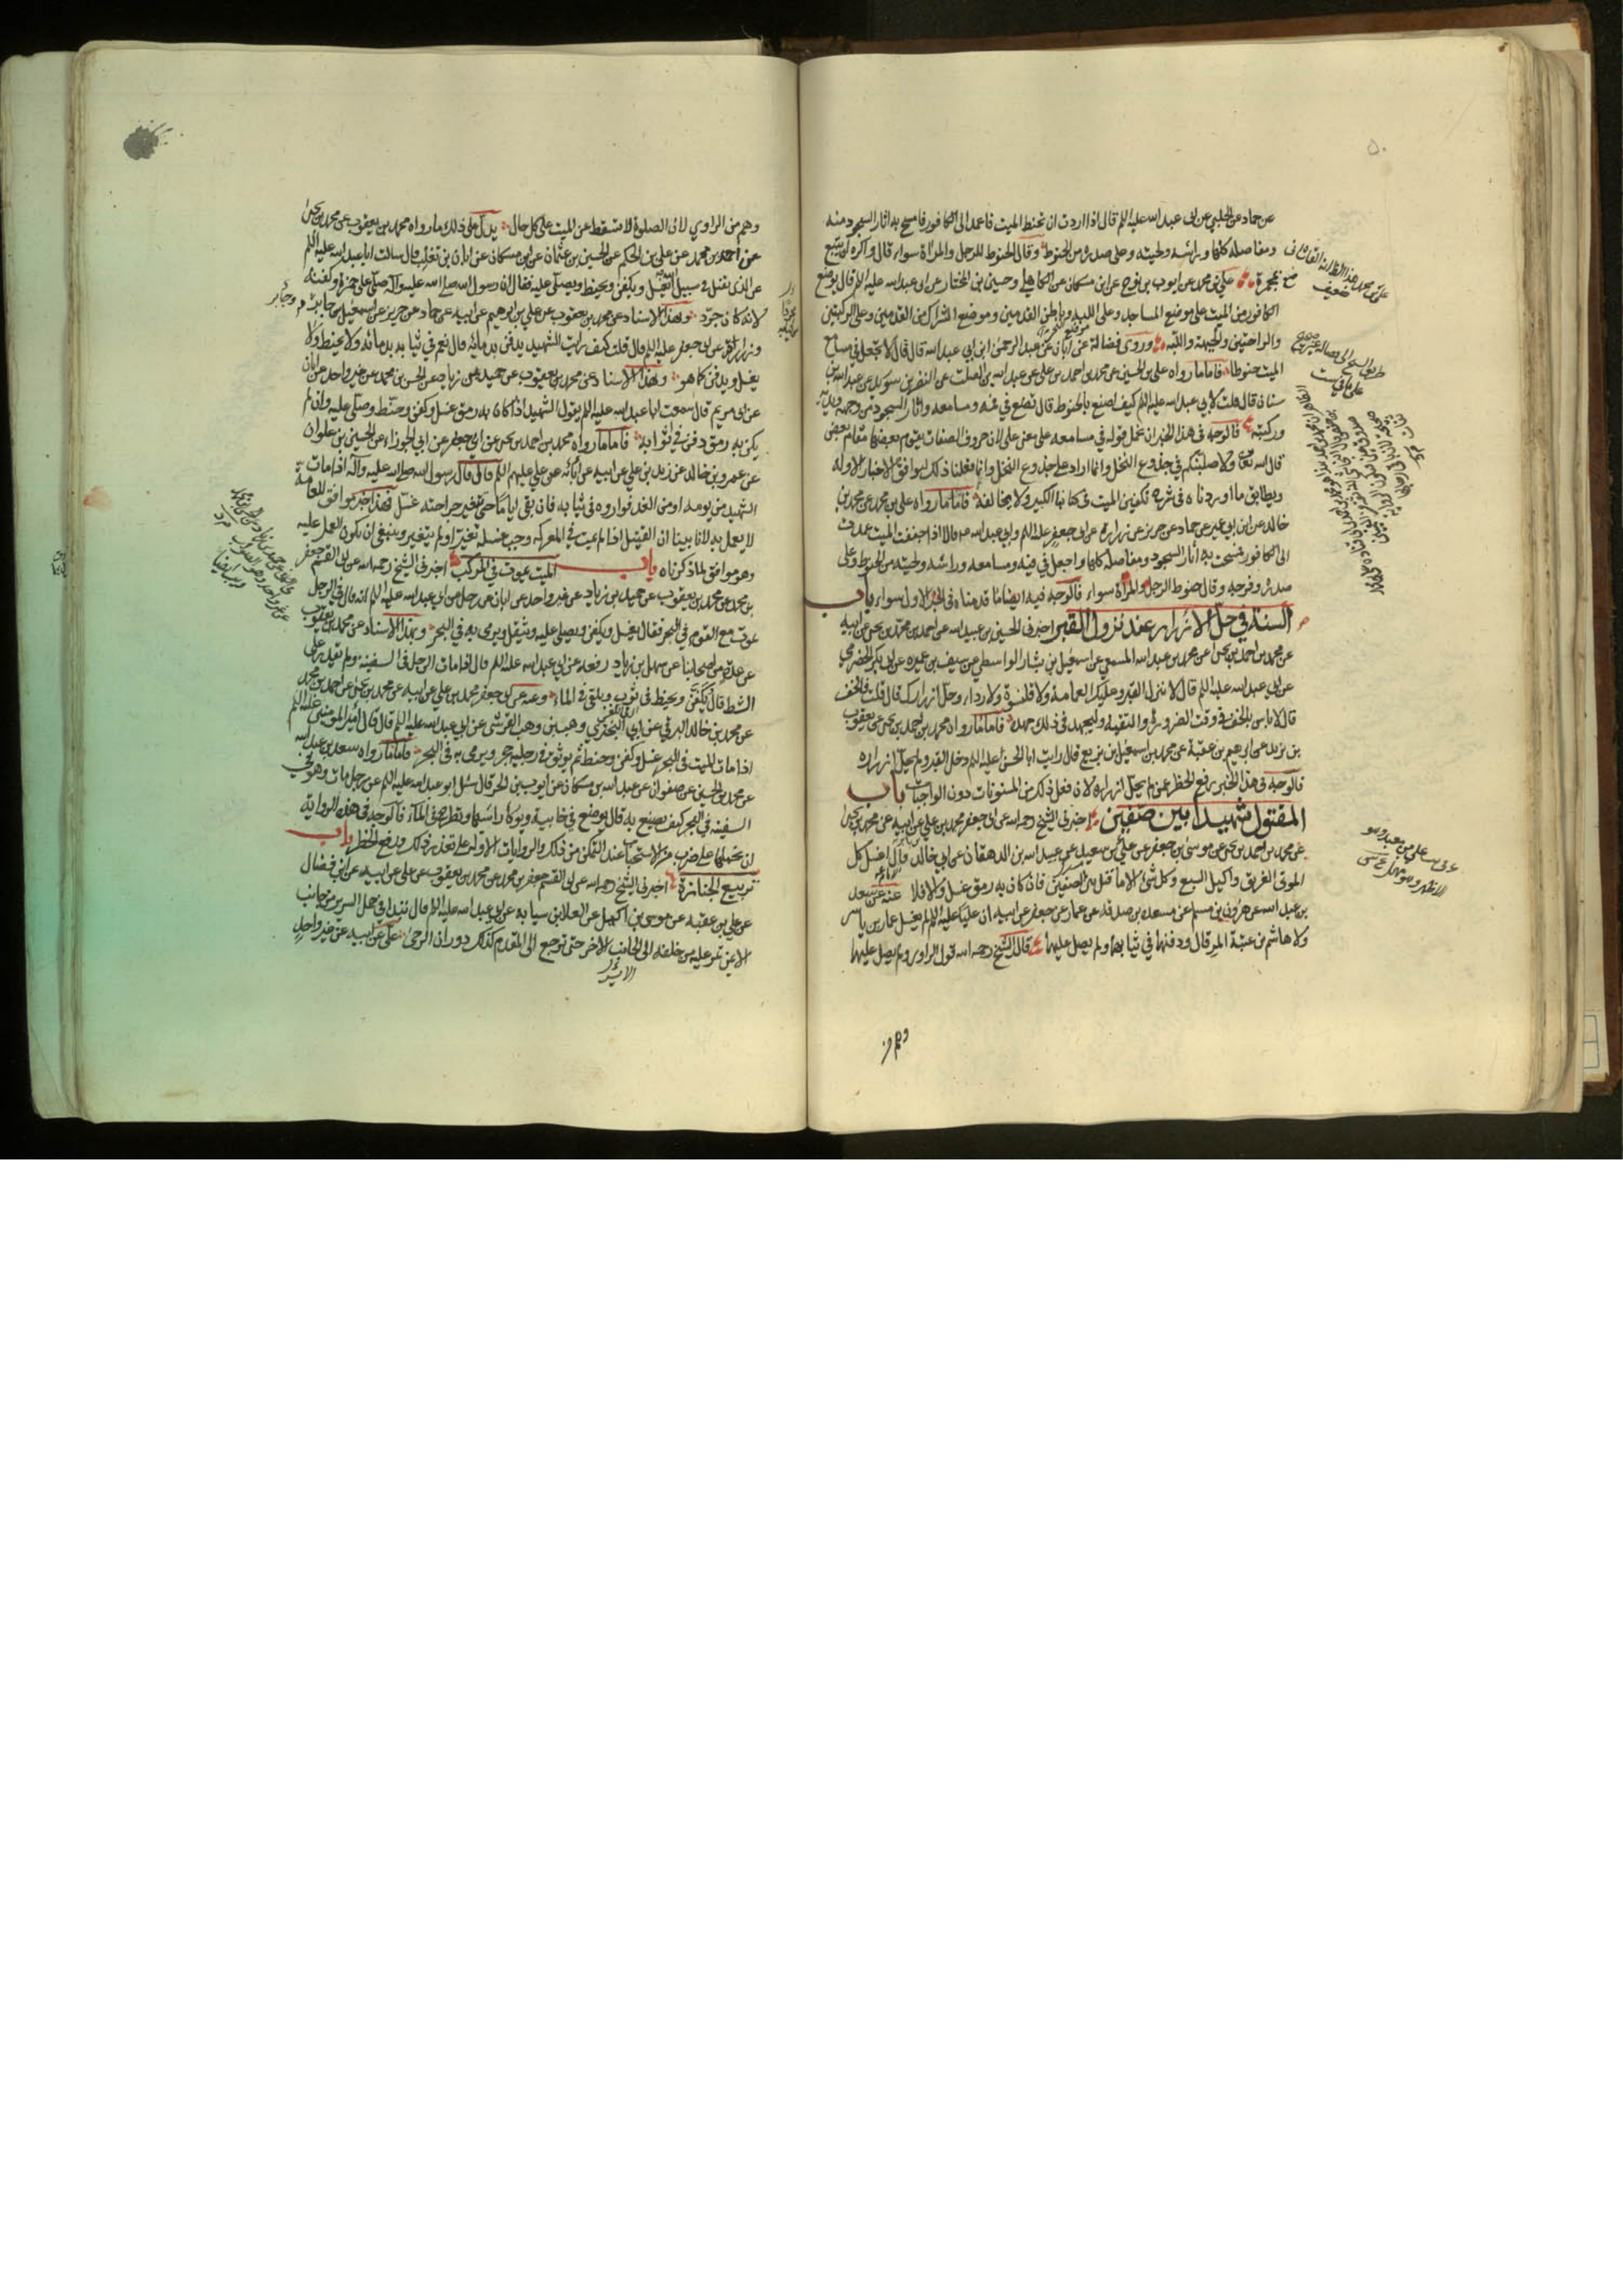 عن حماد عن الحلبي عن ابى عبد الله عليه الم قال اذا اردت ان تحنط الميت فاعمد الى الكافور فامسح به اثار السجود منه
ومفاصله كلها وراسه ولحيته وعلى صدره من الحنوط وقال الحنوط للرجل والمراة سواء قال واكره ان يتبع
بمجمرة علي بن محمد عن ايوب بن نوح عن ابن مسكان عن الكاهلي وحسين بن المختار عن ابى عبد الله عليه الم قال يوضع
الكافور من الميت على موضع المساجد وعلى اللبه وباطن القدمين وموضع الشراك من القدمين وعلى الركبتين
والراحتين والجبهة واللبه وروى فضالة عن ابان عن عبد الرحمن ابن ابي عبد الله قال قال لا تجعل في مسامع
الميت حنوطا فاما ما رواه على بن الحسين عن محمد بن احمد بن علي عن عبد الله بن الصلت عن النضر بن سويد عن عبد الله بن
سنان قال قلت لابي عبد الله عليه الم كيف اصنع بالحنوط قال تضع في فمه ومسامعه واثار السجود من وجهه ويديه
وركبتيه فالوجه في هذا الخبر ان نحمل قوله في مسامعه على معنى على لان حروف الصفات يقوم بعضها مقام بعض
قال الله تعالى ولاصلبنكم في جذوع النخل وانما اراد على جذوع النخل وانما فعلنا ذلك ليوافق الاخبار الاوله
ويطابق ما اوردناه في شرح تكفين الميت في كتابنا الكبير ولا يخالفه فاما ما رواه على بن محمد عن محمد بن
خالد عن ابن ابي عمير عن حماد عن حريز عن زرارة عن ابى جعفر عليه الم وابي عبد الله قالا اذا جففت الميت عمدت
الى الكافور فمسحت به اثار السجود ومفاصله كلها واجعل في فيه ومسامعه وراسه ولحيته من الحنوط وعلى
صدره وفرجه وقال حنوط الرجل والمراة سواء فالوجه فيه ايضا ما قدمناه في الخبر الاول سواء باب
السنة في حل الازرار عند نزول القبر اخبرنى الحسين بن عبيد الله عن احمد بن محمد بن يحيى عن ابيه
عن محمد بن احمد بن يحيى عن محمد بن عبد الله المسمعي عن اسمعيل بن يسار الواسطي عن سيف بن عميره عن ابى بكر الحضرمي
عن ابى عبد الله عليه الم قال لا تنزل القبر وعليك العمامة ولا قلنسوة ولا رداء وحل ازرارك قال قلت فالخف
قال لا باس بالخف في وقت الضرورة والتقيه وليجهد في ذلك جهده فاما ما رواه محمد بن احمد بن يحيى عن يعقوب
بن يزيد عن ابرهيم بن عقبة عن محمد بن اسمعيل بن بزيع قال رايت ابا الحسن عليه الم دخل القبر ولم يحل ازراره
فالوجه في هذا الخبر رفع الحظر عمن لم يحل ازراره لان فعل ذلك من المسنونات دون الواجبات باب
المقتول شهيدا بين صفين اخبرنى الشيخ رحمه الله عن ابى جعفر محمد بن علي عن ابيه عن محمد بن يحيى
عن محمد بن احمد بن يحيى عن موسى بن جعفر عن علي بن سعيد عن عبيد الله بن الدهقان عن ابي خالد قال اغسل كل
الموتى الغريق واكيل السبع وكل شئ الا ما قتل بين الصفين فان كان به رمق غسل والا فلا عنه عن سعد
بن عبد الله عن هرون بن مسلم عن مسعدة بن صدقة عن عمار عن جعفر عن ابيه ان عليا عليه الم لم يغسل عمار بن ياسر
ولا هاشم بن عتبة المرقال ودفنهما في ثيابهما ولم يصل عليهما قال الشيخ رحمه الله قول الراوى ولم يصل عليهما
وهم من
وهم من الراوي لان الصلوة لا تسقط عن الميت على كل حال يدل على ذلك ما رواه محمد بن يعقوب عن محمد بن يحيى
عن احمد بن محمد عن علي بن الحكم عن الحسين بن عثمان عن ابن مسكان عن ابان بن تغلب قال سالت ابا عبد الله عليه الم
عن الذى يقتل في سبيل الله ايغسل ويكفن ويحنط ويصلى عليه فقال ان رسول الله صلى الله عليه وآله صلى على حمزة وكفنه
لانه كان جرد وبهذا الاسناد عن محمد بن يعقوب عن علي بن ابرهيم عن ابيه عن حماد عن حريز عن اسمعيل بن جابر
وزرارة عن ابى جعفر عليه الم قال قلت كيف رايت الشهيد يدفن بدمائه قال نعم في ثيابه بدمائه ولا يحنط ولا
يغسل ويدفن كما هو وبهذا الاسناد عن محمد بن يعقوب عن حميد بن زياد عن الحسن بن محمد عن غير واحد عن ابان
عن ابى مريم قال سمعت ابا عبد الله عليه الم يقول الشهيد اذا كان به رمق غسل وكفن وحنط وصلى عليه وان لم
يكن به رمق دفن في اثوابه فاما ما رواه محمد بن احمد بن يحيى عن ابي جعفر عن ابي الجوزاء عن الحسين بن علوان
عن عمرو بن خالد عن زيد بن علي عن ابيه عن آبائه عن علي عليهم الم قال قال رسول الله صلى الله عليه وآله اذا مات
الشهيد من يومه او من الغد فواروه في ثيابه فان بقى اياما حتى تتغير جراحته غسل فهذا خبر موافق للعامة
لا يعمل به لانا بينا ان القتيل اذا لم يمت في المعركه وجب غسله تغير او لم يتغير وينبغي ان يكون العمل عليه
وهو موافق لما ذكرناه باب الميت يموت في المركب اخبرنى الشيخ رحمه الله عن ابى القسم جعفر
بن محمد عن محمد بن يعقوب عن حميد بن زياد عن غير واحد عن ابان عن رجل عن ابي عبد الله عليه الم انه قال في الرجل
يموت مع القوم في البحر فقال يغسل ويكفن ويصلى عليه ويثقل ويرمى به في البحر وبهذا الاسناد عن محمد بن يعقوب
عن عدة من اصحابنا عن سهل بن زياد رفعه عن ابى عبد الله عليه الم قال اذا مات الرجل في السفينة ولم يقدر على
الشط قال يكفن ويحنط في ثوب ويلقى في الماء وعنه عن ابى جعفر محمد بن علي عن ابيه عن محمد بن يحيى عن احمد بن محمد
عن محمد بن خالد البرقي عن ابي البختري وهب بن وهب القرشي عن ابي عبد الله عليه الم قال قال امير المومنين عليه الم
اذا مات الميت في البحر غسل وكفن وحنط ثم يوثق في رجليه حجر ويرمى به في البحر فاما ما رواه سعد بن عبد الله
عن محمد بن الحسين عن صفوان عن عبد الله بن مسكان عن ايوب بن الحر قال سئل ابو عبد الله عليه الم عن رجل مات وهو في
السفينه في البحر كيف يصنع به قال يوضع في خابية ويوكا راسها ويطرح في الماء فالوجه في هذه الرواية
ان نحملها على ضرب من الاستحباب عند التمكن من ذلك والروايات الاوله على تعذر ذلك ورفع الحظر باب
تربيع الجنازة اخبرنى الشيخ رحمه الله عن ابى القسم جعفر بن محمد عن محمد بن يعقوب عن علي عن ابيه عن ابن فضال
عن علي بن عقبه عن موسى بن اكيل عن العلا بن سيابه عن ابى عبد الله عليه الم قال تبدا في حمل السرير من جانب
الايمن ثم تمر عليه من خلفه الى الجانب الاخر حتى ترجع الى المقدم كذلك دوران الرحى علي عن ابيه عن غير واحد
الايسر